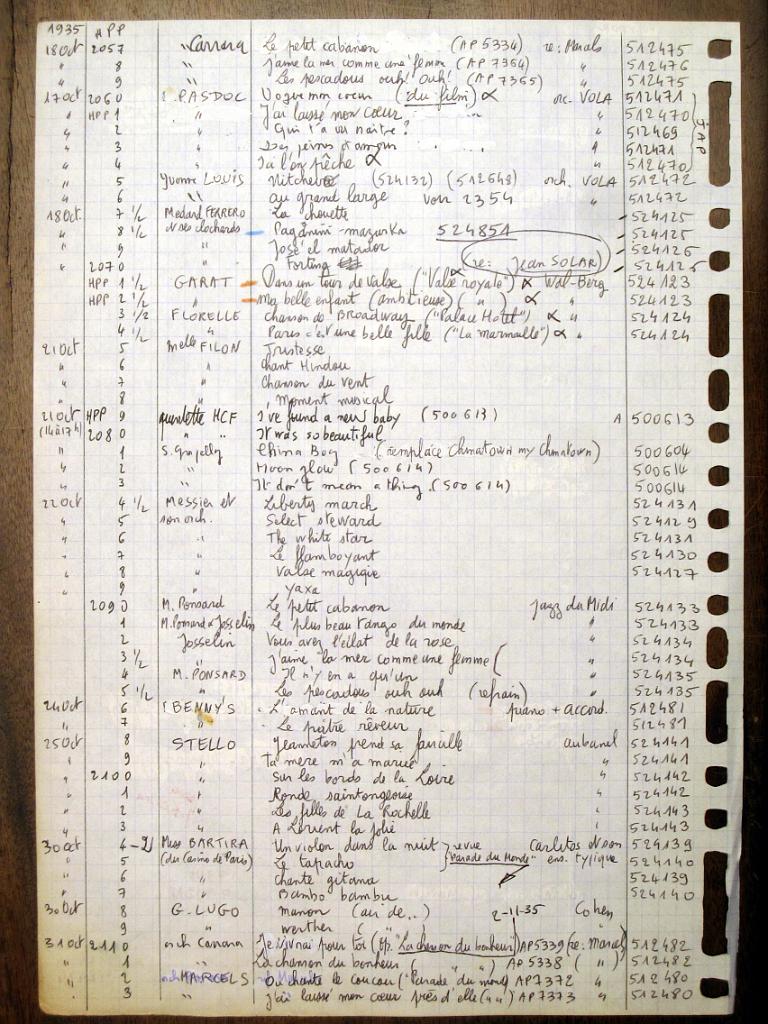 1935 HPP
18 Oct 2057 " Carrara Le petit cabanon (AP 5334) re: Marcels 512475
" 8 " J'aime la mer comme une femme (AP 7364) " 512476
" 9 " Les pescadous ouh! ouh! (AP 7365) 512475
17 oct 2060 PASDOC Vogue mon coeur (du film) α orc. VOLA 512471
" HPP 1 " J'ai laissé mon coeur " 512470
" 2 " Qui t'a vu naître? " 512469
" 3 " Des peines d'amour " 512471
" 4 " Ici l'on pêche α " 512470 JAP
" 5 Yvonne LOUIS (524132) (512648) orch. VOLA 512472
" 6 " au grand large voir 2354 " 512472
18 Oct. 7 1/2 Medard FERRERO La chouette 524125
" 8 1/2 et ses clochards Paganini-mazurka 524851 524125
" 9 " José el matador 524126
" 2070 " Fortina (re: Jean SOLAR) 524125
HPP 1 1/2 GARAT Dans un tour de valse ("Valse royale") α Wal-Berg 524123
HPP 2 1/2 " ma belle enfant (ambitieuse) ( " ) α " 524123
3 1/2 FLORELLE chanson de BROADWAY ("Palace Hotel") α " 524124
4 1/2 " Paris c'est une belle fille ("La marmaille") α " 524124
21 Oct 5 Melle FILON Tristesse
" 6 " Chant Hindou
" 7 " Chanson du vent
" 8 " Moment musical
21 oct HPP 9 quintette HCF I've found a new baby (500613) A 500613
(14à17h) 2080 " " It was so beautiful
" 1 S. Grapelly China Boy (remplace Chinatown my Chinatown) 500604
" 2 " Moon glow (500614) 500614
" 3 " It don't mean a thing (500614) 500614
22 Oct 4 1/2 Messier et Liberty march 524131
" 5 son orch. Select steward 524129
" 6 " The white star 524131
" 7 " Le flamboyant 524130
" 8 " Valse magique 524127
" 9 " Yaxa
2090 M. Ponsard Le petit cabanon jazz du Midi 524133
1 M. Ponsard & Josselin Le plus beau tango du monde " 524133
2 Josselin Vous avez l'éclat de la rose " 524134
3 1/2 " J'aime la mer comme une femme ( " 524134
4 M. PONSARD Il n'y en a qu'un " 524135
5 1/2 " Les pescadous ouh ouh (refrain) " 524135
24 Oct 6 BENNY'S L'amant de la nature piano + accord. 512481
" 7 " Le pâtre rêveur 512481
25 Oct 8 STELLO Jeanneton prend sa faucille aubanel 524141
" 9 " Ta mère m'a marié " 524141
" 2100 " Sur les bords de la Loire " 524142
" 1 " Ronde saintongeoise " 524142
" 2 " Les filles de La Rochelle " 524143
" 3 " A Lorient la jolie " 524143
30 oct 4-2 Miss BARTIRA Un violon dans la nuit } revue Carlitos et son 524139
" 5 (du Casino de Paris) Le tapacho "Parade du Monde" ens. typique 524140
" 6 " chante gitana 524139
" 7 " Bambo bambu 524140
30 Oct 8 G. LUGO manon (air de..) 2-11-35 Cohen
" 9 " werther ( " "
31 Oct 2110 orch Carrara Je vivrai pour toi (op. "La chanson du bonheur") AP5339 (re: Marcel) 512482
" 1 " La chanson du bonheur ( " " ) AP 5338 ( " ) 512482
" 2 MARCELS Ou chante le coucou ("Parade du monde") AP7372 " 512480
" 3 " J'ai laissé mon coeur près d'elle ( " " ) AP7373 " 512480